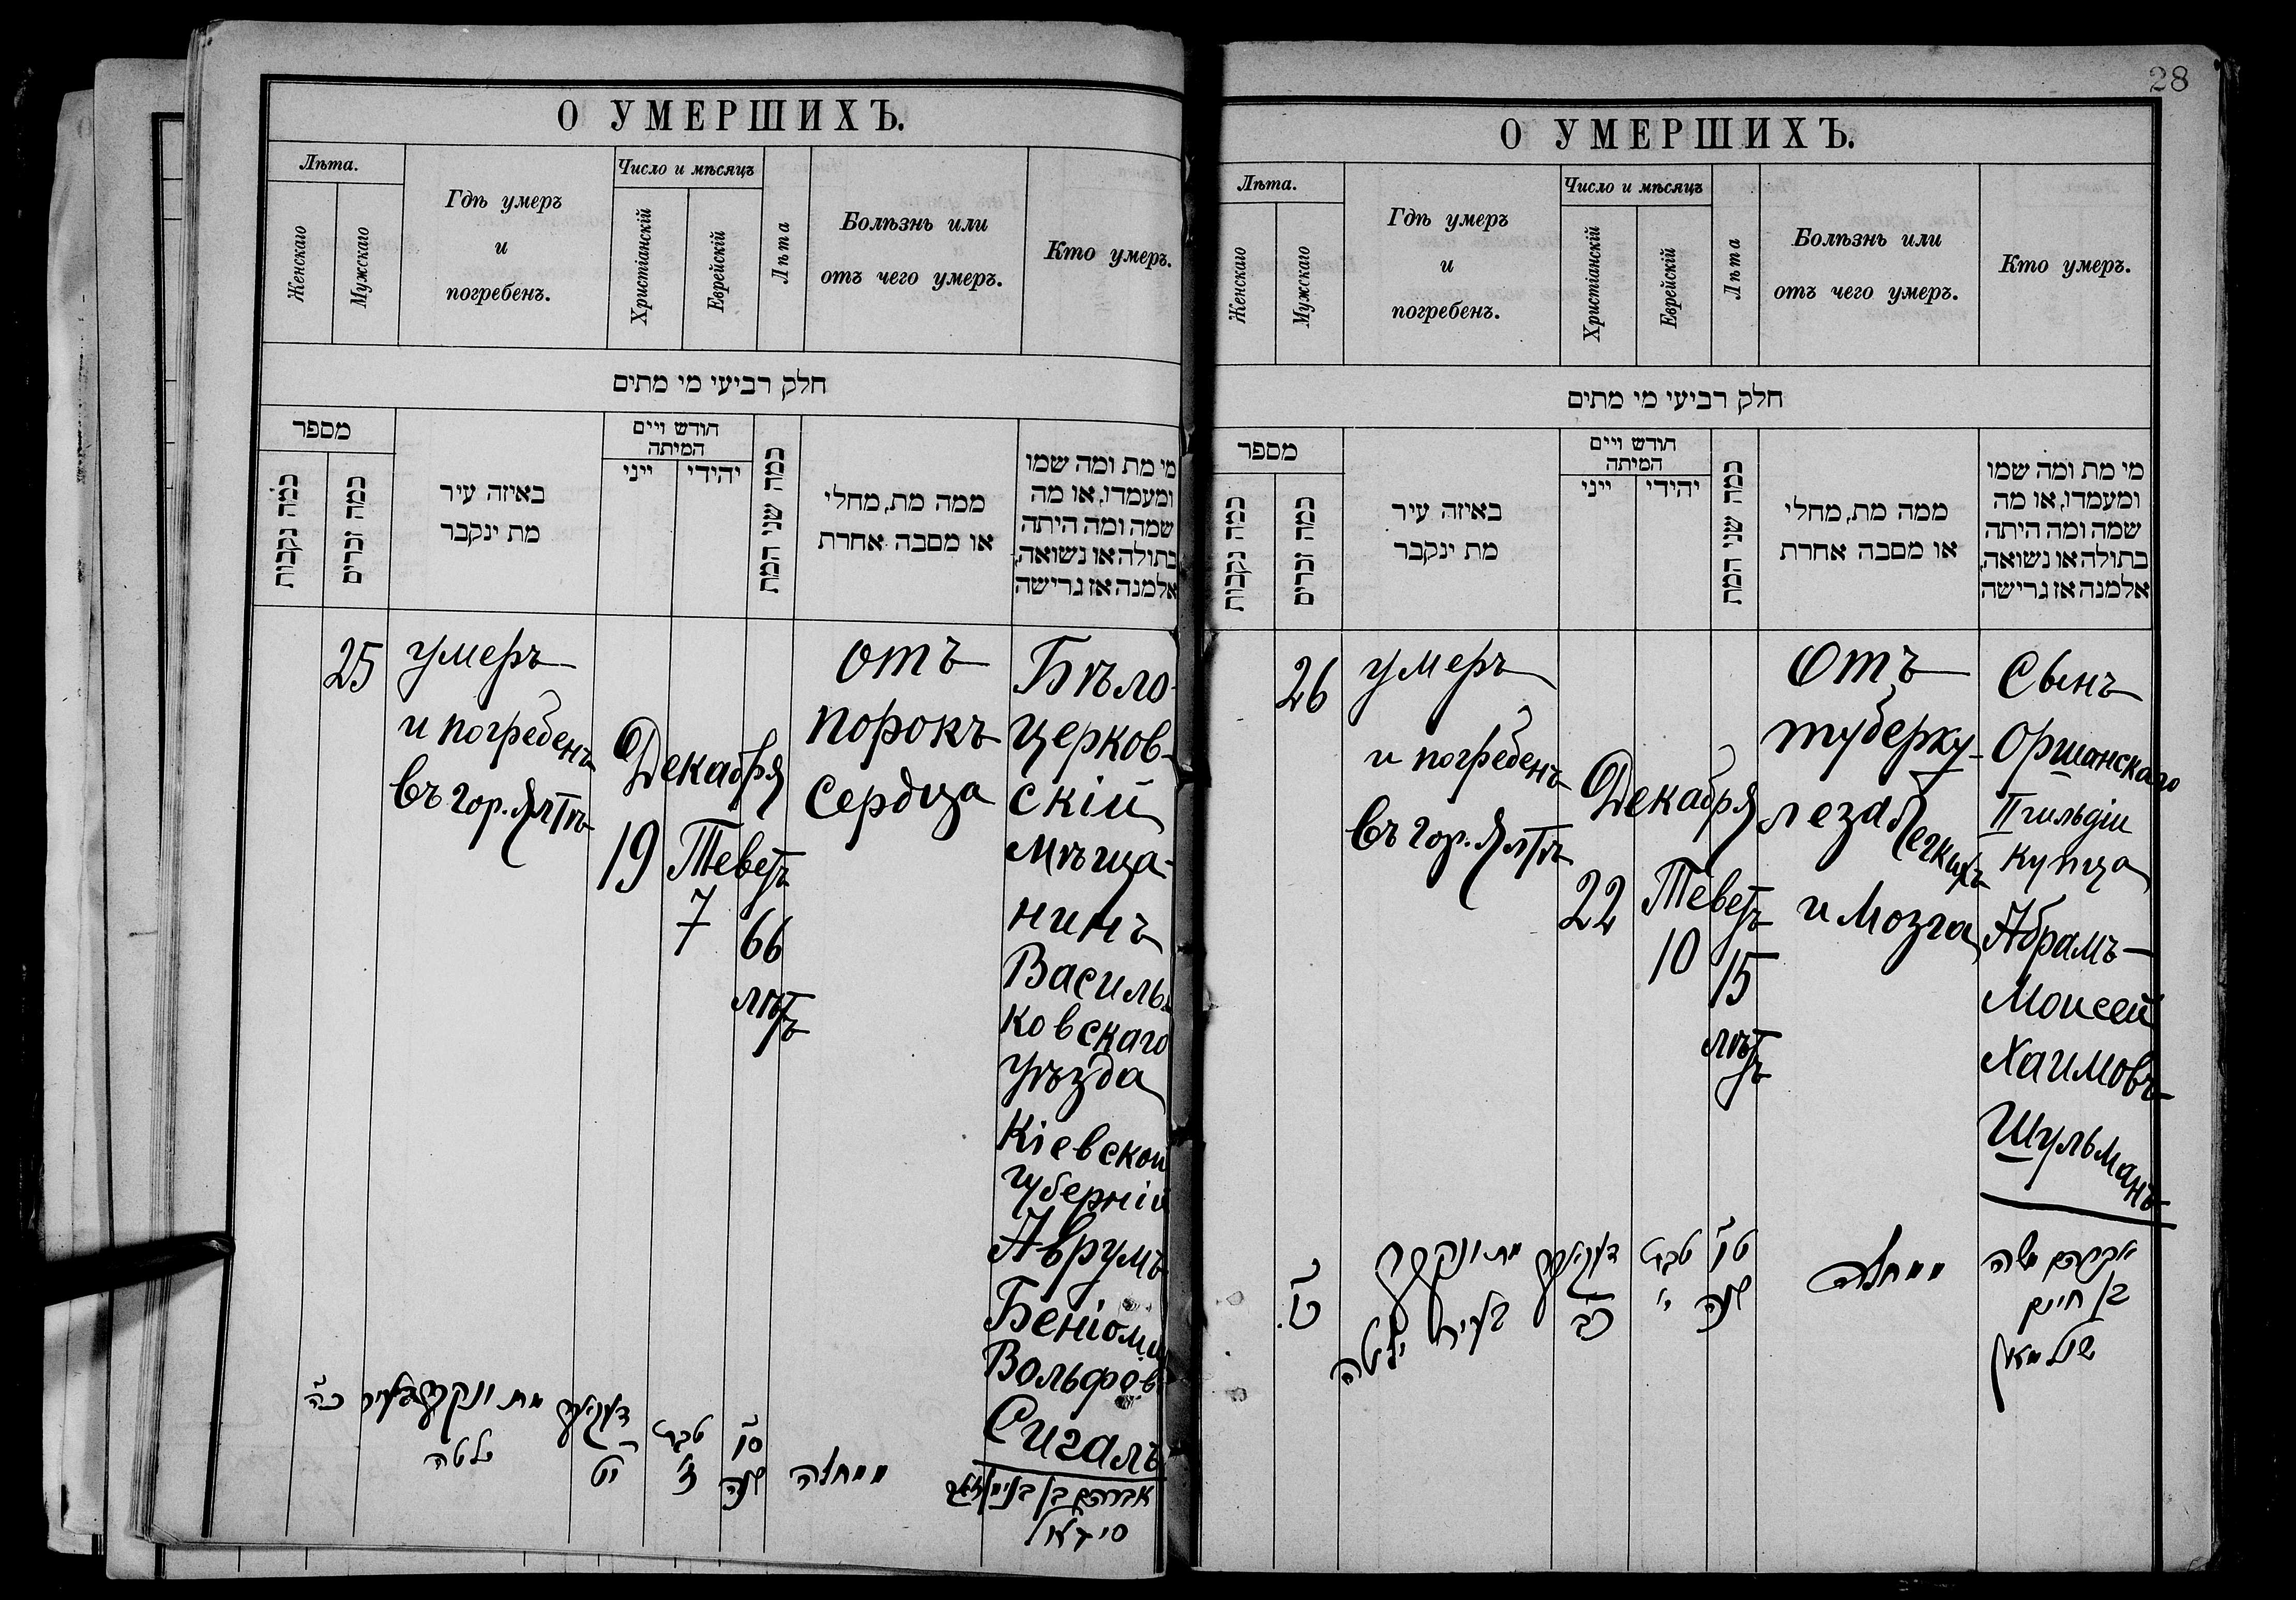 О УМЕРШИХЪ.
Лѣта.
Женскаго
Мужскаго
Гдѣ умеръ
и
погребенъ.
Число и мѣсяцъ
Христіанскій
Еврейскій
Лѣта
Болѣзнь или
отъ чего умеръ.
Кто умеръ.
חלק רביעי מי מתים
מספר
כמה נקבות
כמה זכרים
באיזה עיר
מת ינקבר
חודש ויים
המיתה
ייני
יהידי
כמה שני המת
ממה מת, מחלי
או מסבה אחרת
מי מת ומה שמו
ומעמדו, או מה
שמה ומה היתה
בתולה או נשואה,
אלמנה אז גרישה
25
умеръ
и погребенъ
въ гор. Ялтѣ
Декабря
19
Теветъ
7
66
лѣтъ
отъ
порокъ
сердца
Бѣло-
церков-
скій
мѣща-
нинъ
Василь-
ковскаго
уѣзда
Кіевской
губерній
Аврумъ
Беніоми
Вольфов
Сигалъ
כ״ה
מת ונקבר בעיר
ילטה
דעקאבר
י״ט
טבת
ז׳
ס״ו
שנה
ממחלה
אברהם בן בנימין זאב
סיגאל
28
О УМЕРШИХЪ.
Лѣта.
Женскаго
Мужскаго
Гдѣ умеръ
и
погребенъ.
Число и мѣсяцъ
Христіанскій
Еврейскій
Лѣта
Болѣзнь или
отъ чего умеръ.
Кто умеръ.
חלק רביעי מי מתים
מספר
כמה נקבות
כמה זכרים
באיזה עיר
מת ינקבר
חודש ויים
המיתה
ייני
יהידי
כמה שני המת
ממה מת, מחלי
או מסבה אחרת
מי מת ומה שמו
ומעמדו, או מה
שמה ומה היתה
בתולה או נשואה,
אלמנה אז גרישה
26
умеръ
и погребенъ
въ гор. Ялтѣ
Декабря
22
Теветъ
10
15
лѣтъ
Отъ
туберку-
леза Легкихъ
и Мозга
Сынъ
Оршанскаго
II гильдіи
купца
Абрамъ-
Моисей
Хаимовъ
Шульманъ
מת ונקבר
בעיר ילטה
דעקאבר
כ״ב
טבת
י׳
ט״ו
שנה
ממחלה
אברהם משה
בן חיים
שולמאן